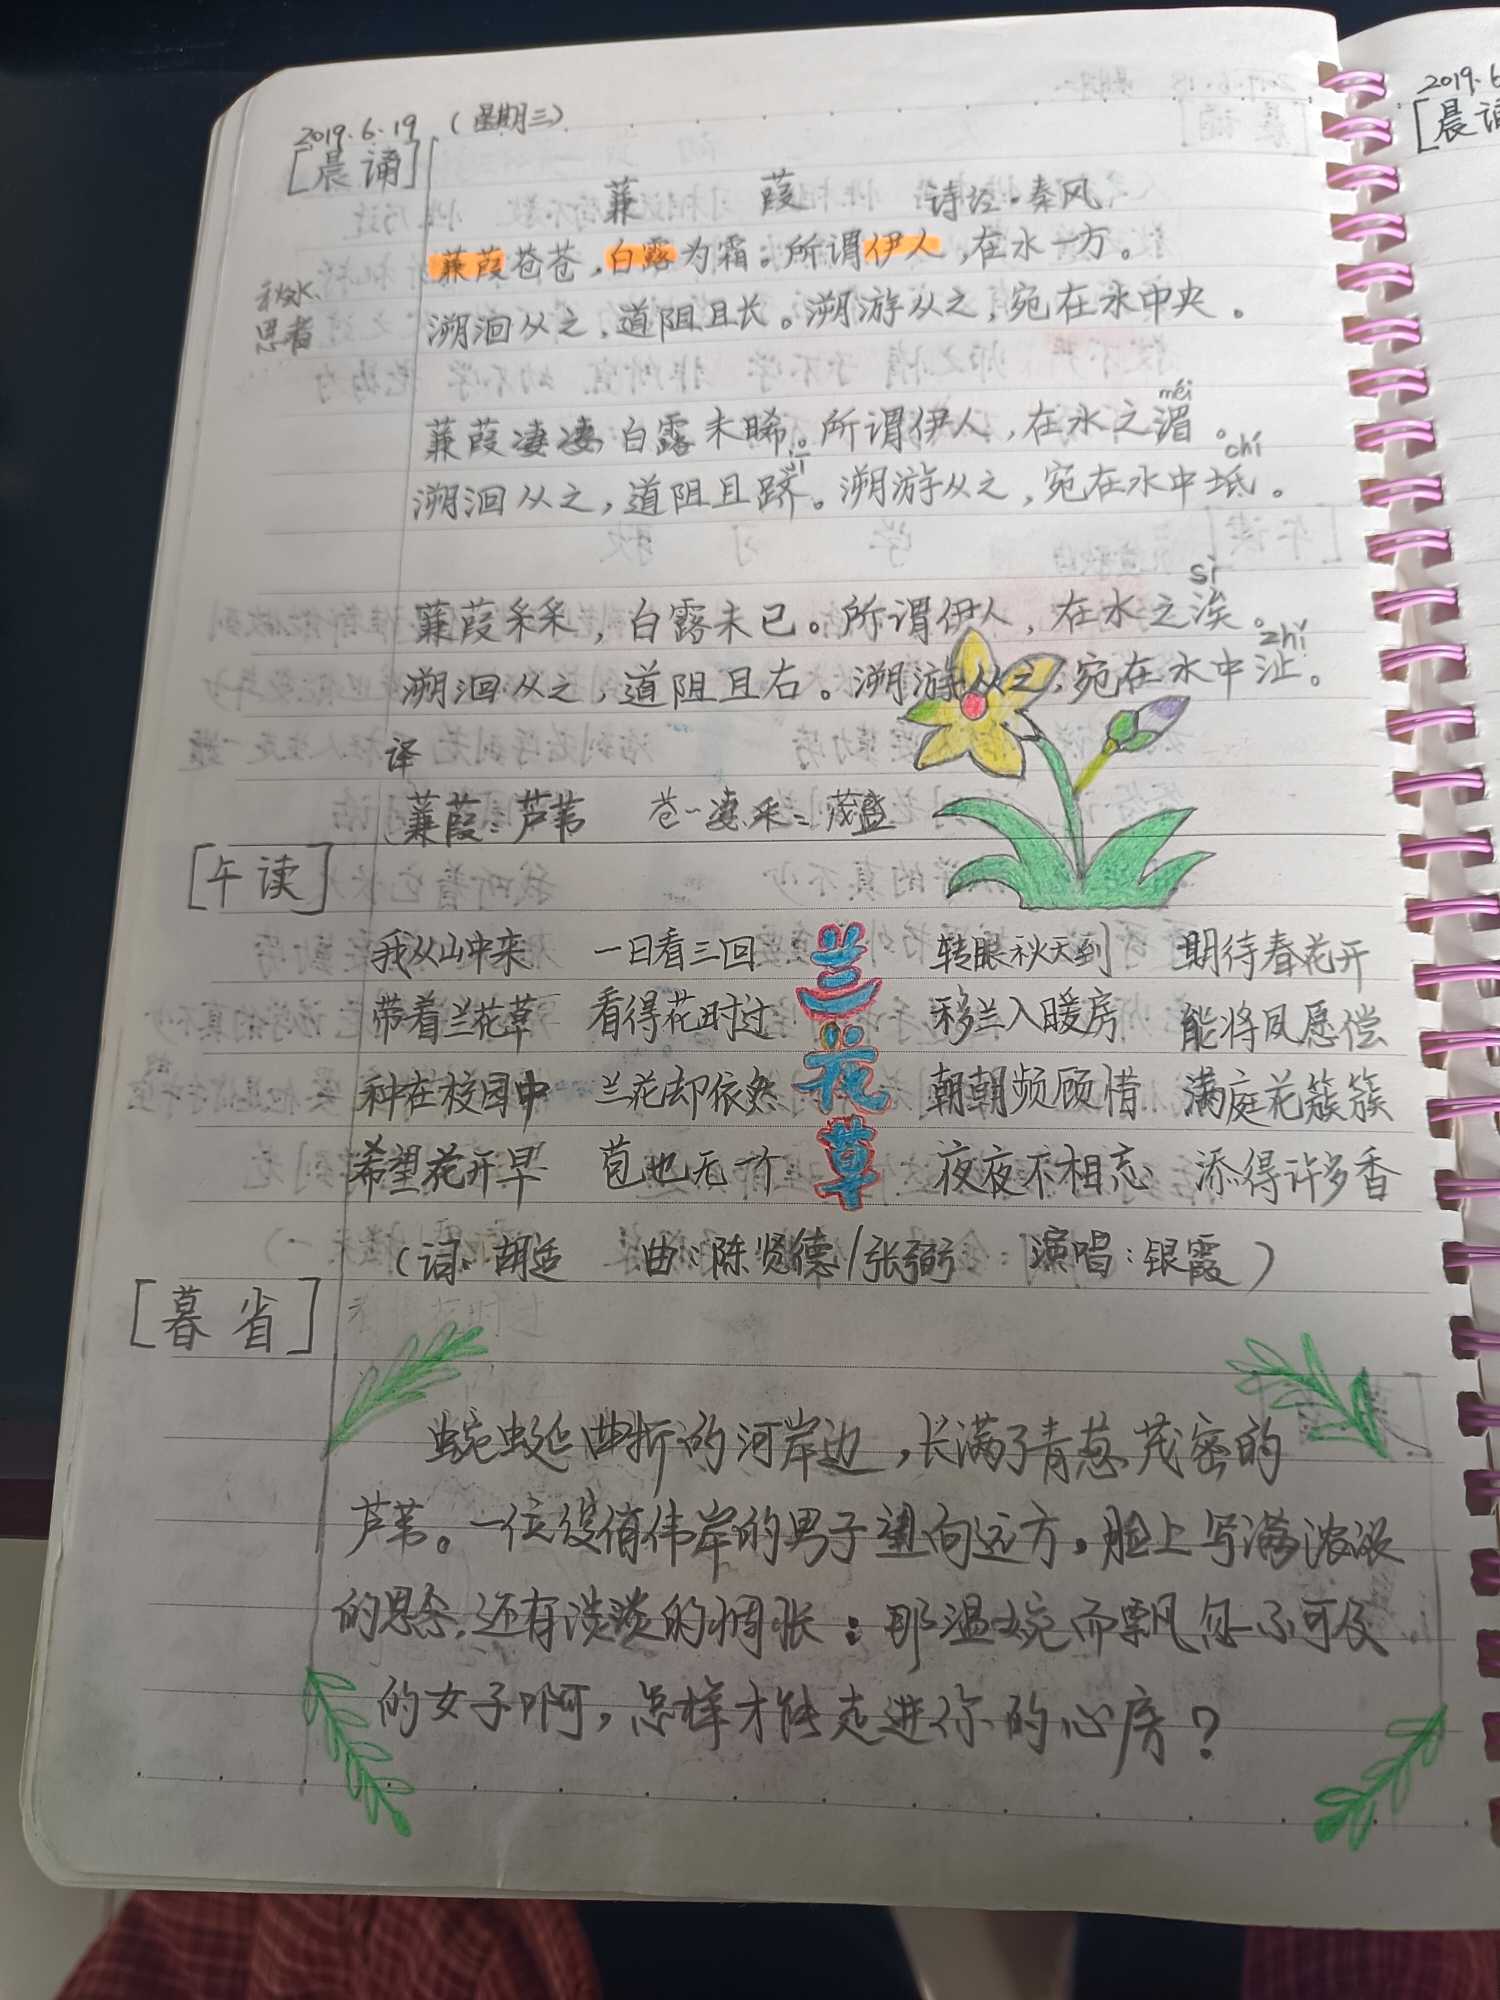 2019.6.19 (星期三)
[晨诵]
蒹 葭 诗经·秦风
蒹葭苍苍，白露为霜。所谓伊人，在水一方。
秋水
思者
溯洄从之，道阻且长。溯游从之，宛在水中央。
méi
蒹葭凄凄，白露未晞。所谓伊人，在水之湄。
jī chí
溯洄从之，道阻且跻。溯游从之，宛在水中坻。
sì
蒹葭采采，白露未已。所谓伊人，在水之涘。
zhǐ
溯洄从之，道阻且右。溯游从之，宛在水中沚。
译
蒹葭：芦苇 苍--凄.采=茂盛
[午读]
兰花草
我从山中来 一日看三回 转眼秋天到 期待春花开
带着兰花草 看得花时过 移兰入暖房 能将夙愿偿
种在校园中 兰花却依然 朝朝频顾惜 满庭花簇簇
希望花开早 苞也无一个 夜夜不相忘 添得许多香
(词：胡适 曲：陈贤德/张弼 演唱：银霞)
[暮省]
蜿蜒曲折的河岸边，长满了青葱茂密的
芦苇。一位俊俏伟岸的男子望向远方，脸上写满浓浓
的思念，还有淡淡的惆怅：那温婉而飘忽不可及
的女子啊，怎样才能走进你的心房？
2019.6
[晨诵